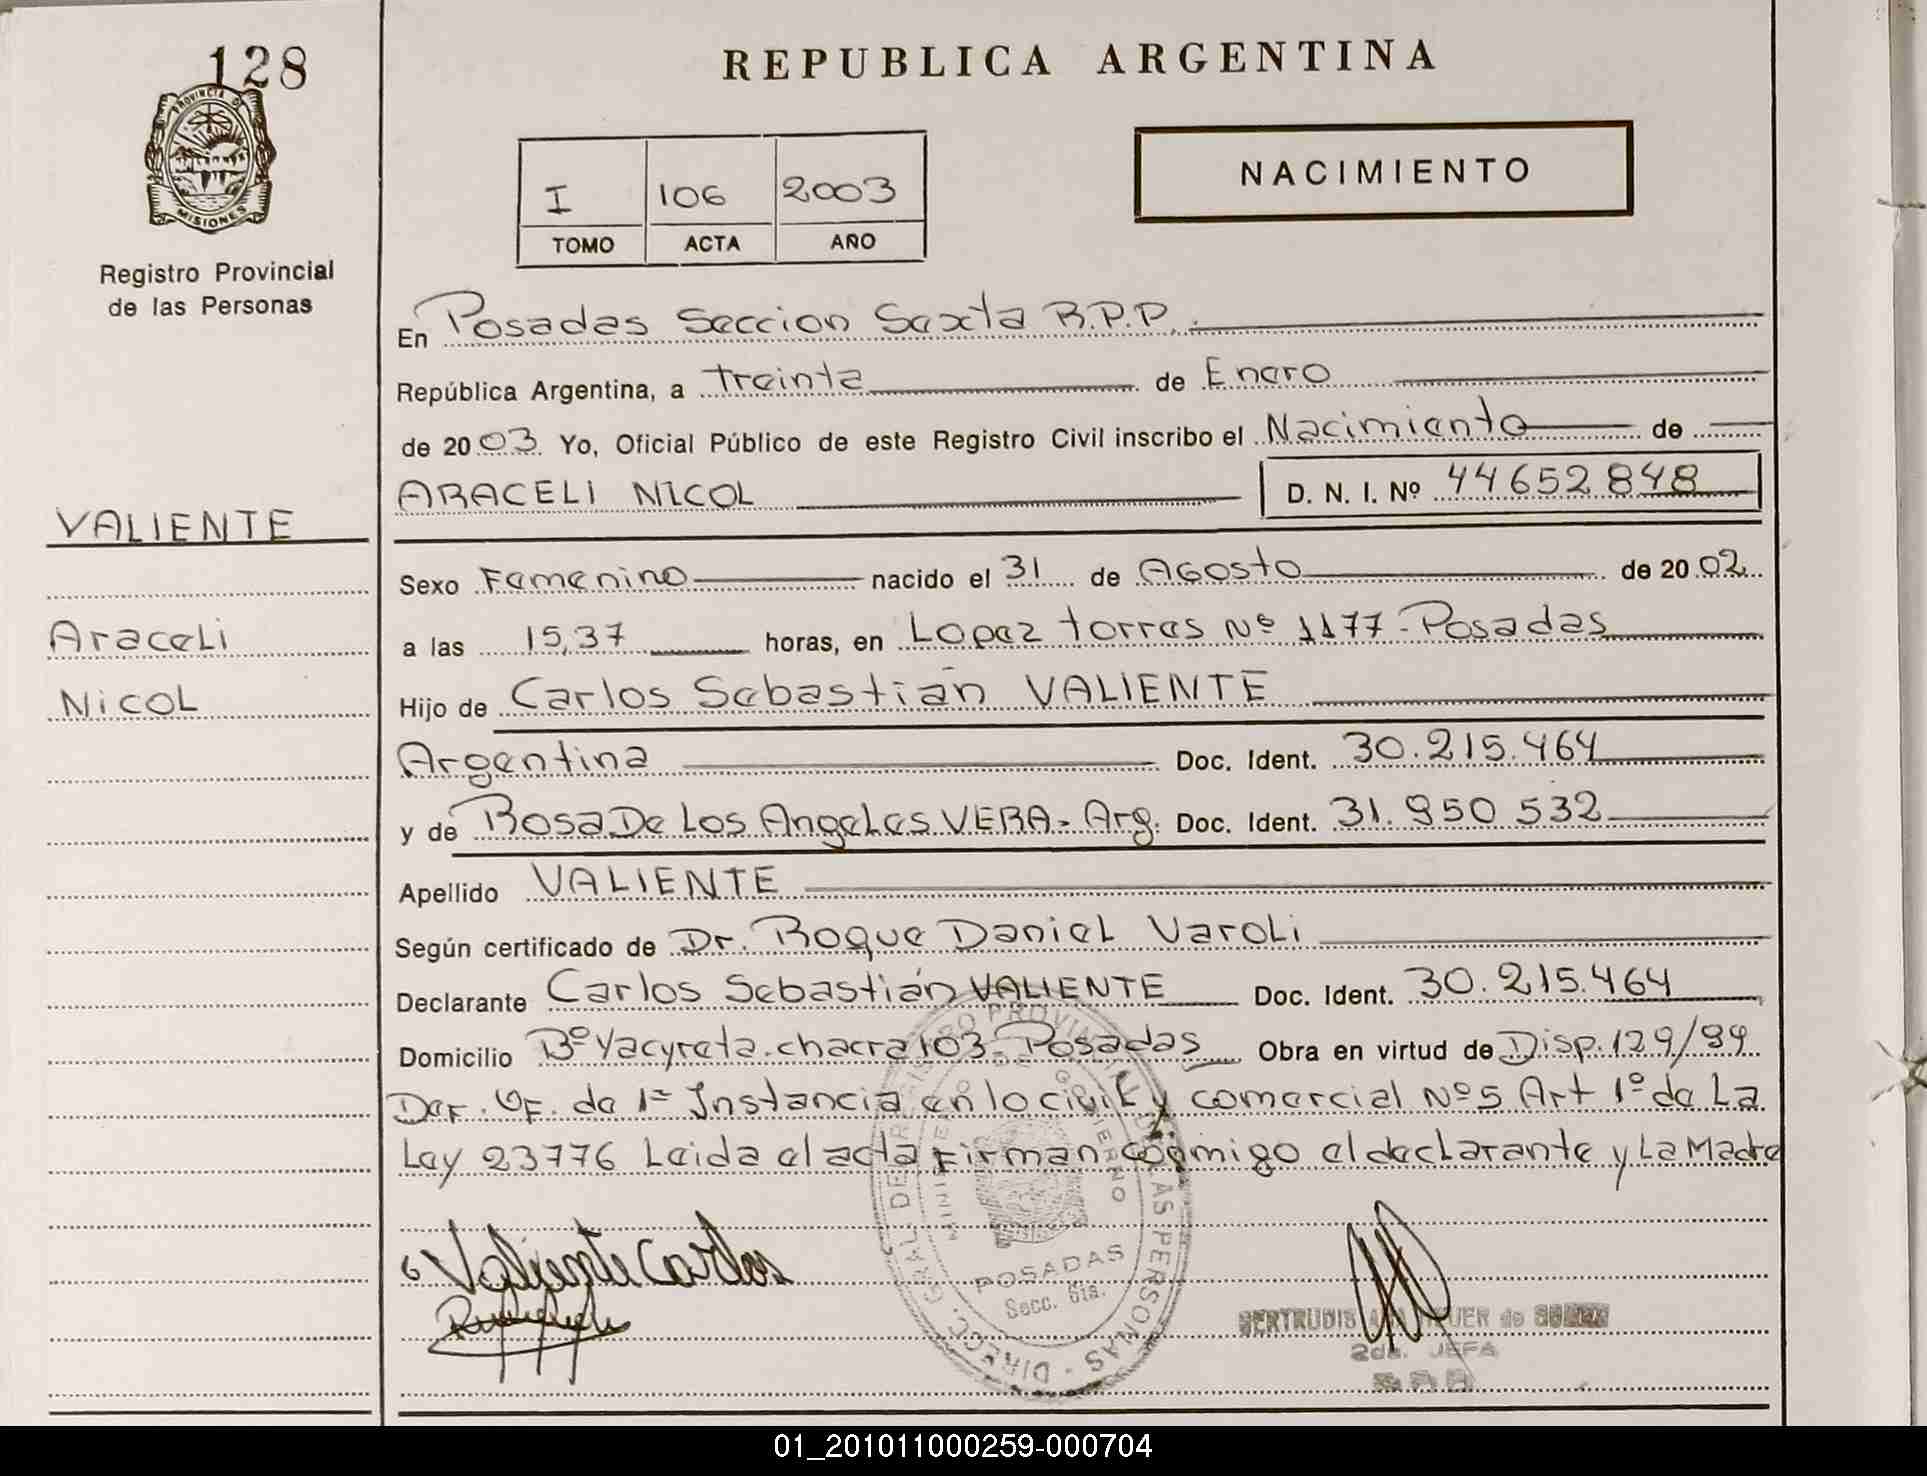 128
REPUBLICA ARGENTINA
PROVINCIA DE
MISIONES
Registro Provincial
de las Personas
NACIMIENTO
I 106 2003
TOMO ACTA AÑO
En Posadas Seccion Sexta R.P.P.
República Argentina, a treinta de Enero
de 2003 Yo, Oficial Público de este Registro Civil inscribo el Nacimiento de
ARACELI NICOL D. N. I. Nº 44652848
VALIENTE
Sexo Femenino nacido el 31 de Agosto de 2002
Araceli
a las 15,37 horas, en Lopez torres Nº 1177 - Posadas
Nicol
Hijo de Carlos Sebastián VALIENTE
Argentina Doc. Ident. 30.215.464
y de Rosa De Los Angeles VERA - Arg. Doc. Ident. 31.950 532
Apellido VALIENTE
Según certificado de Dr. Roque Daniel Varoli
Declarante Carlos Sebastián VALIENTE Doc. Ident. 30.215.464
Domicilio Bº Yacyreta. chacra 103 - Posadas Obra en virtud de Disp. 129/99
Def. Of. de 1ª Instancia en lo civil y comercial Nº 5 Art 1º de La
Ley 23776 Leida el acta firman conmigo el declarante y La Madre
Valiente Carlos
DIRECC. GRAL. DE REGISTRO PROVINCIAL DE LAS PERSONAS
MINISTERIO DE GOBIERNO
POSADAS
Secc. 6ta.
GERTRUDIS de
2da. JEFA
01_201011000259-000704